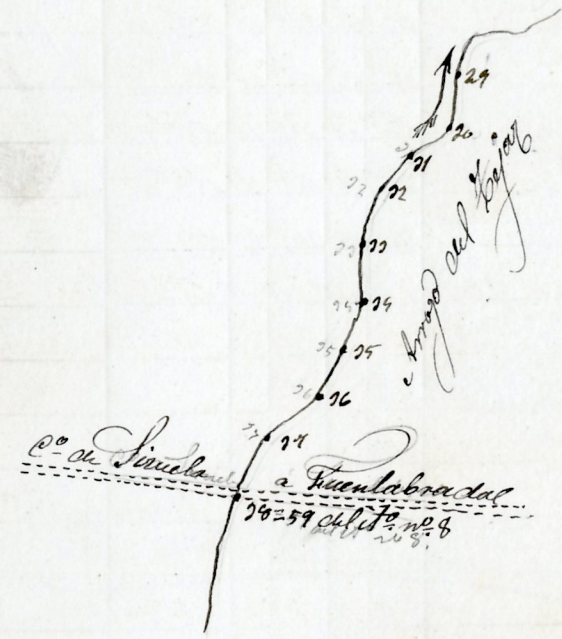 29
30
31
32
33
34
35
36
37
Arroyo del Tejar
C.º de Siruela á Fuenlabrada
38=59 del it.º n.º 8